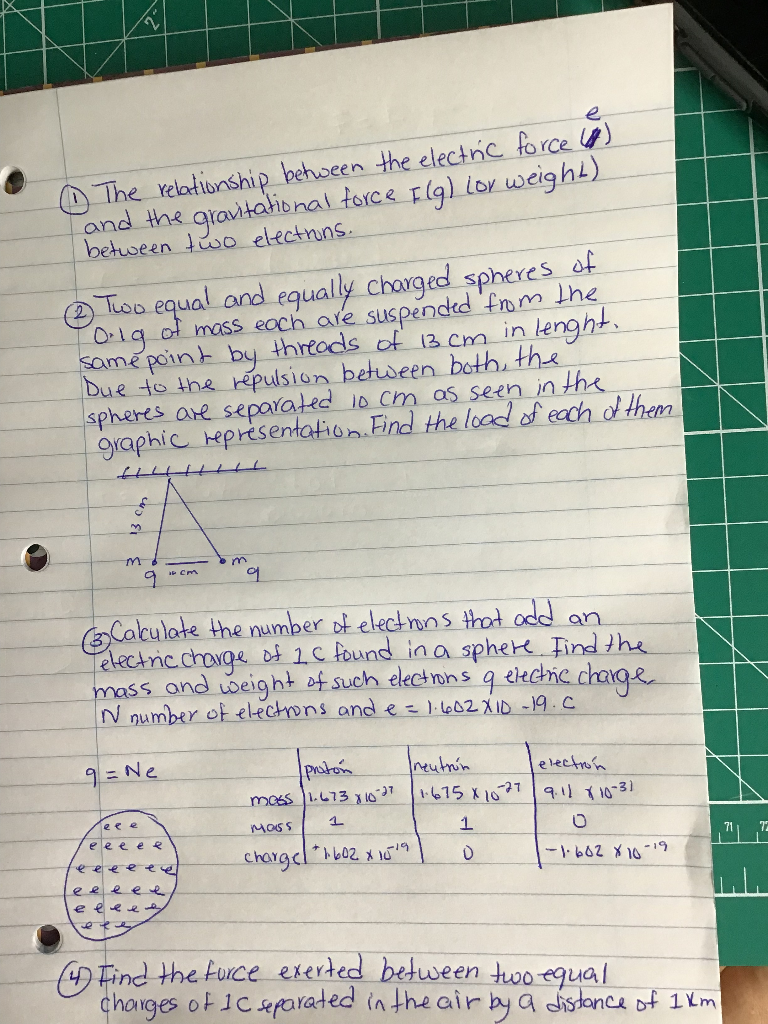 ① The relationship between the electric force (e)
and the gravitational force F(g) (or weight)
between two electrons.
② Two equal and equally charged spheres of
0.1g of mass each are suspended from the
same point by threads of 13 cm in lenght.
Due to the repulsion between both, the
spheres are separated 10 cm as seen in the
graphic representation. Find the load of each of them
13 cm
m m
q 10 cm q
③ Calculate the number of electrons that add an
electric charge of 1C found in a sphere. Find the
mass and weight of such electrons q electric charge
N number of electrons and e = 1.602 X 10 -19. C
q = Ne
protón neutrón electrón
mass 1.673 x 10-27 1.675 x 10-27 9.11 x 10-31
mass 1 1 0
charge +1.602 x 10-19 0 -1.602 x 10-19
e e e
e e e e e
e e e e e e
e e e e e
e e e e e
e e e
④ Find the force exerted between two equal
charges of 1C separated in the air by a distance of 1Km
2"
71 72